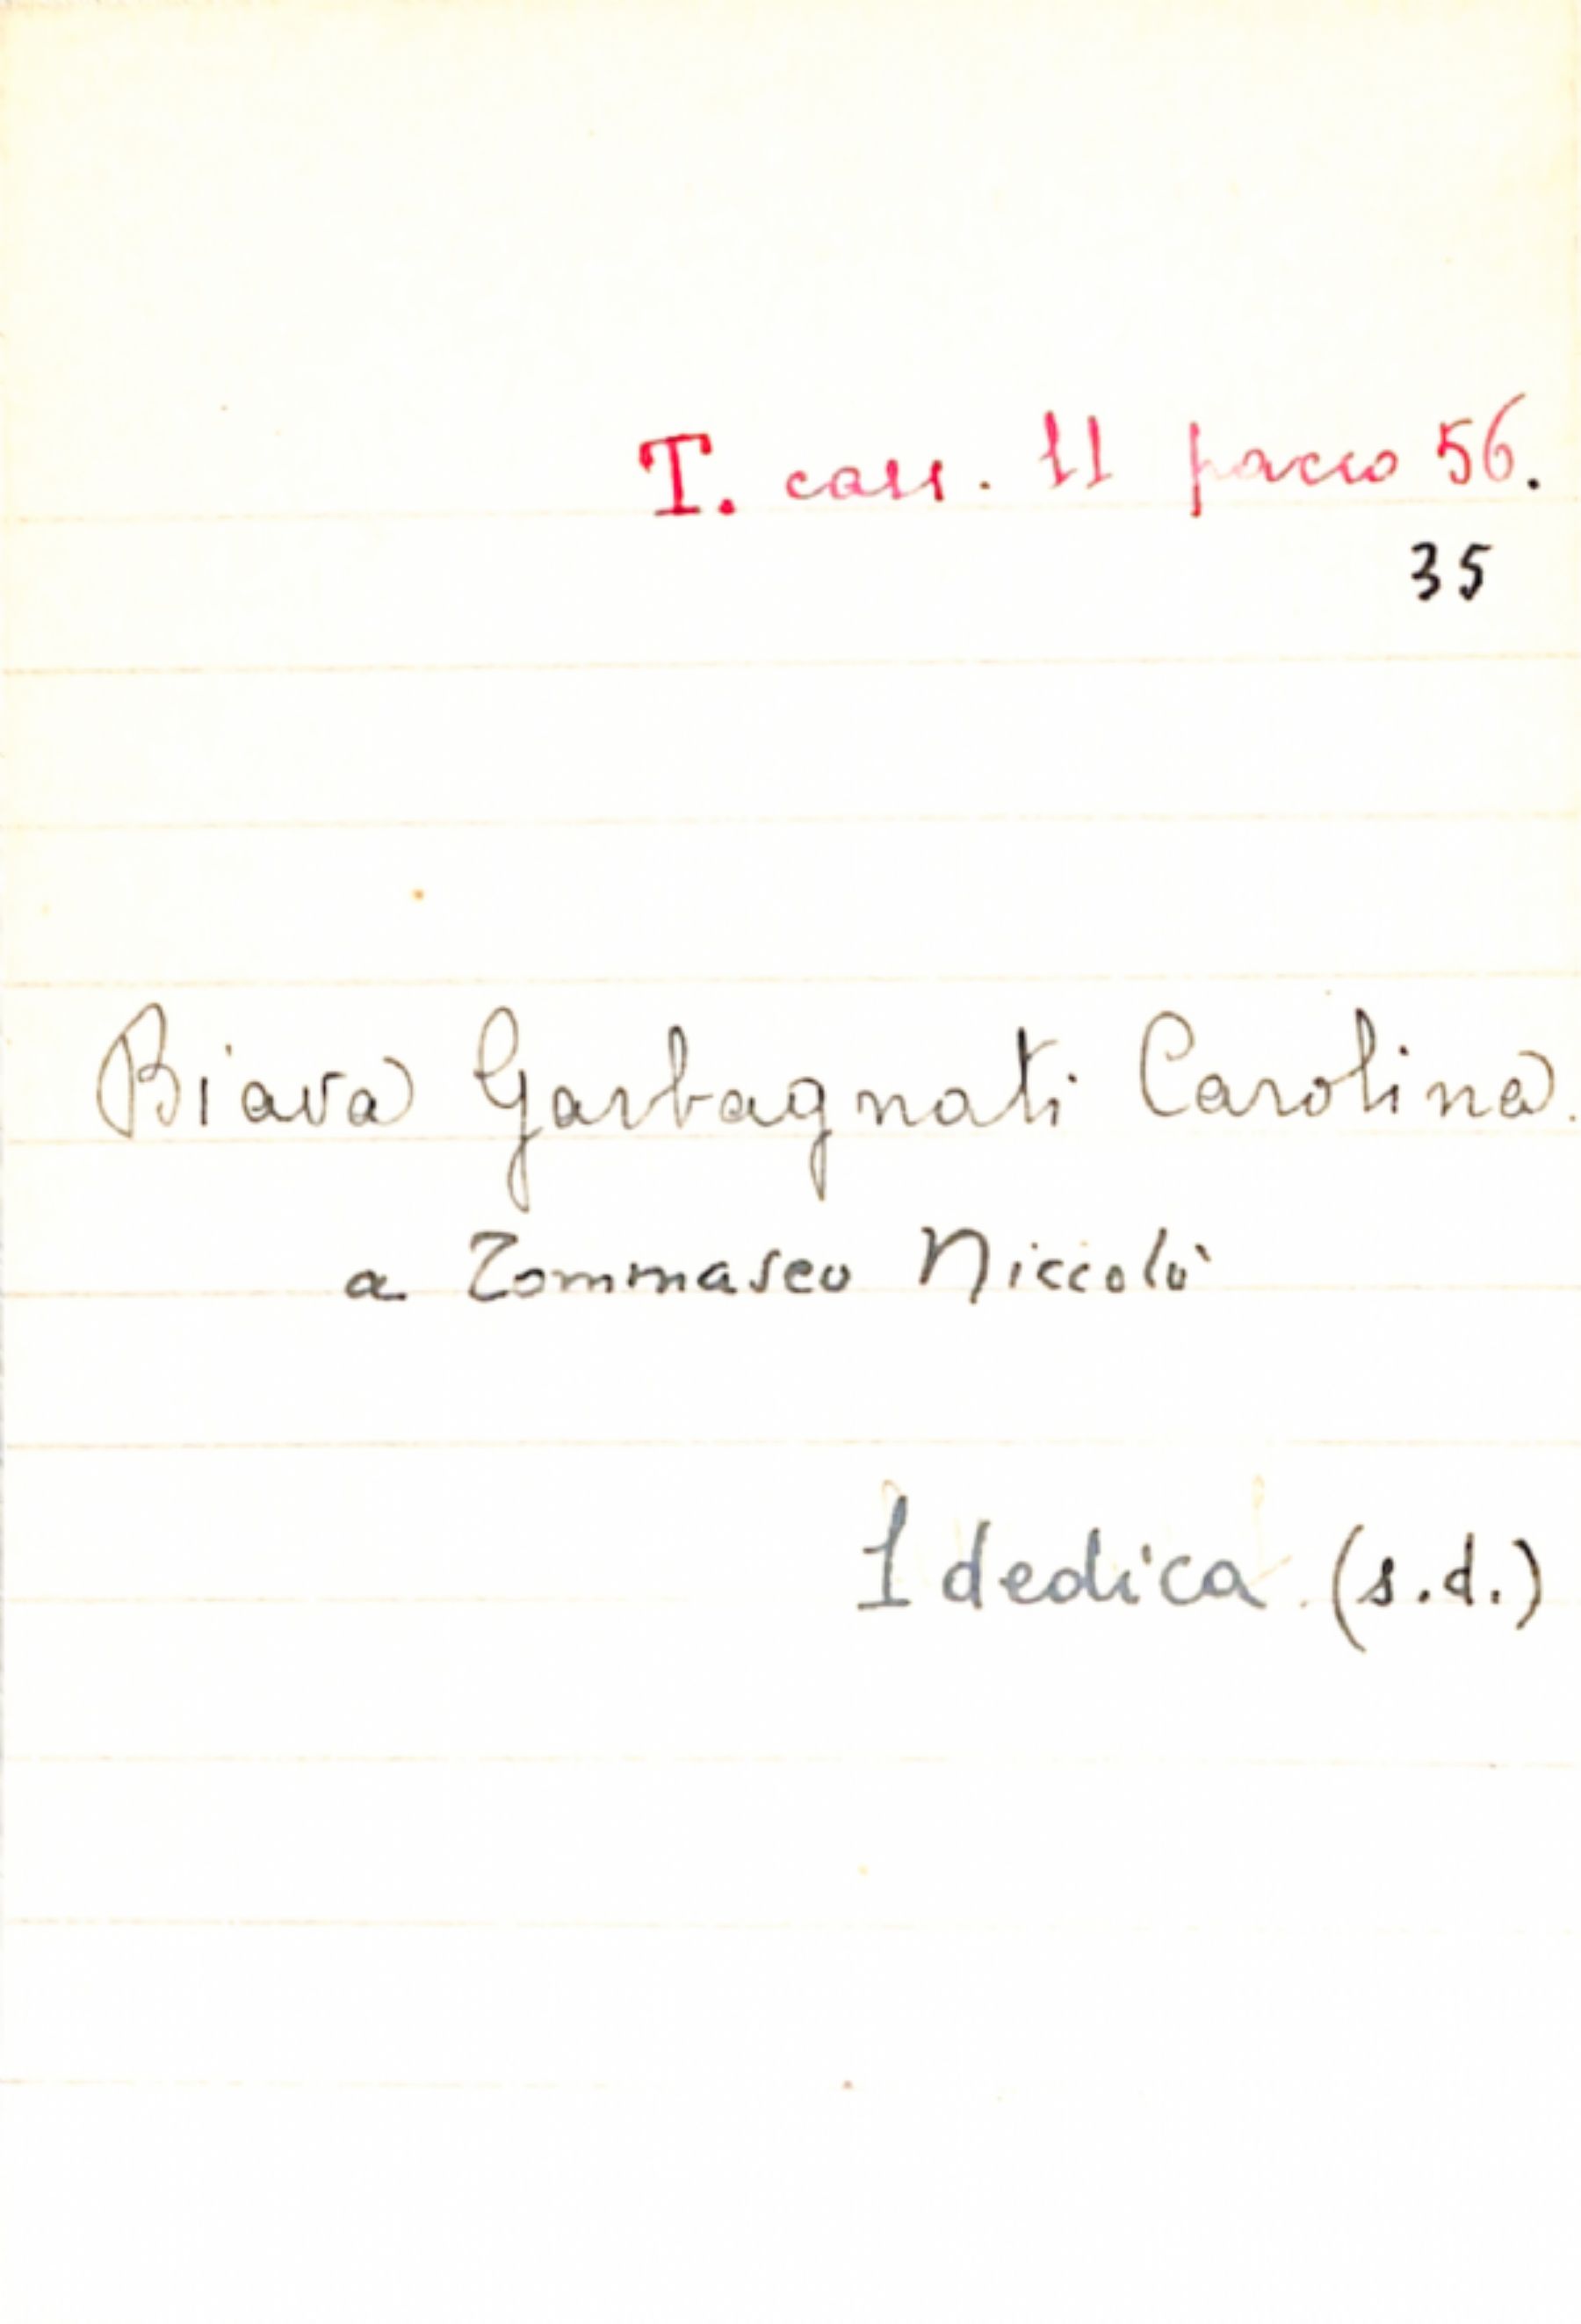 T. cass. 11 pacco 56.
35
Biava Garbagnati Carolina.
a Tommaseo Niccolò
1 dedica. (s.d.)